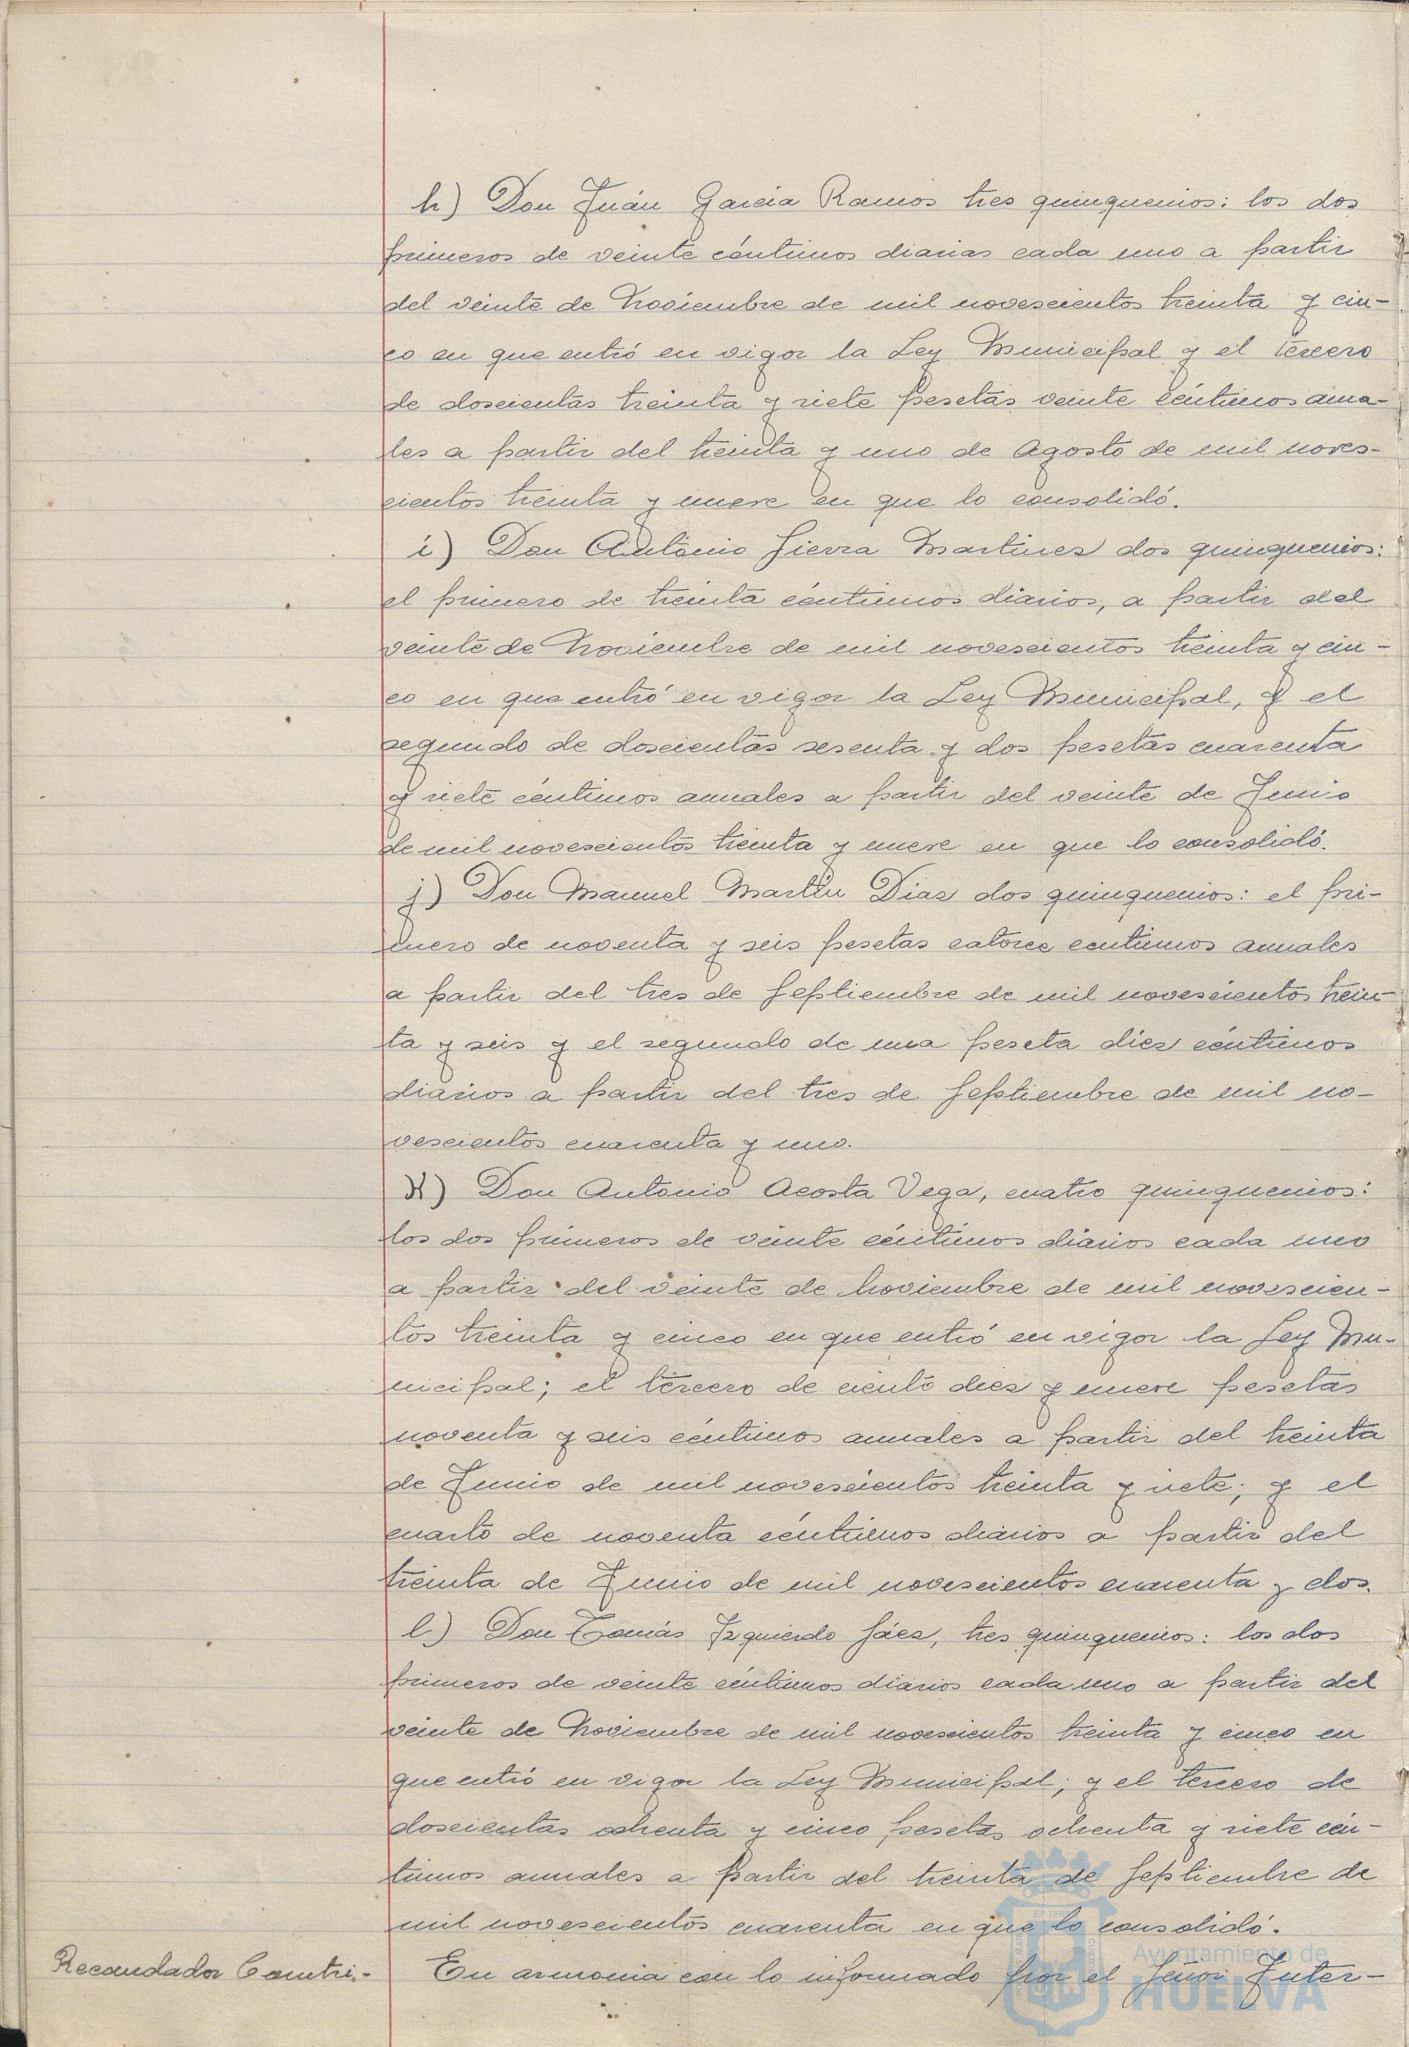 h) Don Juán García Ramos tres quinquenios: los dos
primeros de veinte céntimos diarias cada uno a partir
del veinte de Noviembre de mil novescientos treinta y cin-
co en que entró en vigor la Ley Municipal y el tercero
de doscientas treinta y siete pesetas veinte céntimos anua-
les a partir del treinta y uno de Agosto de mil noves-
cientos treinta y nueve en que lo consolidó.
i) Don Antonio Sierra Martines dos quinquenios:
el primero de treinta céntimos diarios, a partir del
veinte de Noviembre de mil novescientos treinta y cin-
co en que entró en vigor la Ley Municipal, y el
segundo de doscientas sesenta y dos pesetas cuarenta
y siete céntimos anuales a partir del veinte de Junio
de mil novescientos treinta y nueve en que lo consolidó.
j) Don Manuel Martín Dias dos quinquenios: el pri-
mero de noventa y seis pesetas catorce centimos anuales
a partir del tres de Septiembre de mil novescientos trein-
ta y seis y el segundo de una peseta diez céntimos
diarios a partir del tres de Septiembre de mil no-
vescientos cuarenta y uno.
K) Don Antonio Acosta Vega, cuatro quinquenios:
los dos primeros de veinte céntimos diarios cada uno
a partir del veinte de Noviembre de mil novescien-
tos treinta y cinco en que entró en vigor la Ley Mu-
nicipal; el tercero de ciento diez y nueve pesetas
noventa y seis céntimos anuales a partir del treinta
de Junio de mil novescientos treinta y siete; y el
cuarto de noventa céntimos diarios a partir del
treinta de Junio de mil novescientos cuarenta y dos.
l) Don Tomás Izquierdo Sáez, tres quinquenios: los dos
primeros de veinte céntimos diarios cada uno a partir del
veinte de Noviembre de mil novescientos treinta y cinco en
que entró en vigor la Ley Municipal; y el tercero de
doscientas ochenta y cinco pesetas ochenta y siete cén-
timos anuales a partir del treinta de Septiembre de
mil novescientos cuarenta en que lo consolidó.
Recaudador Contri.-
En armonia con lo informado por el Señor Inter-
Ayuntamiento de
HUELVA